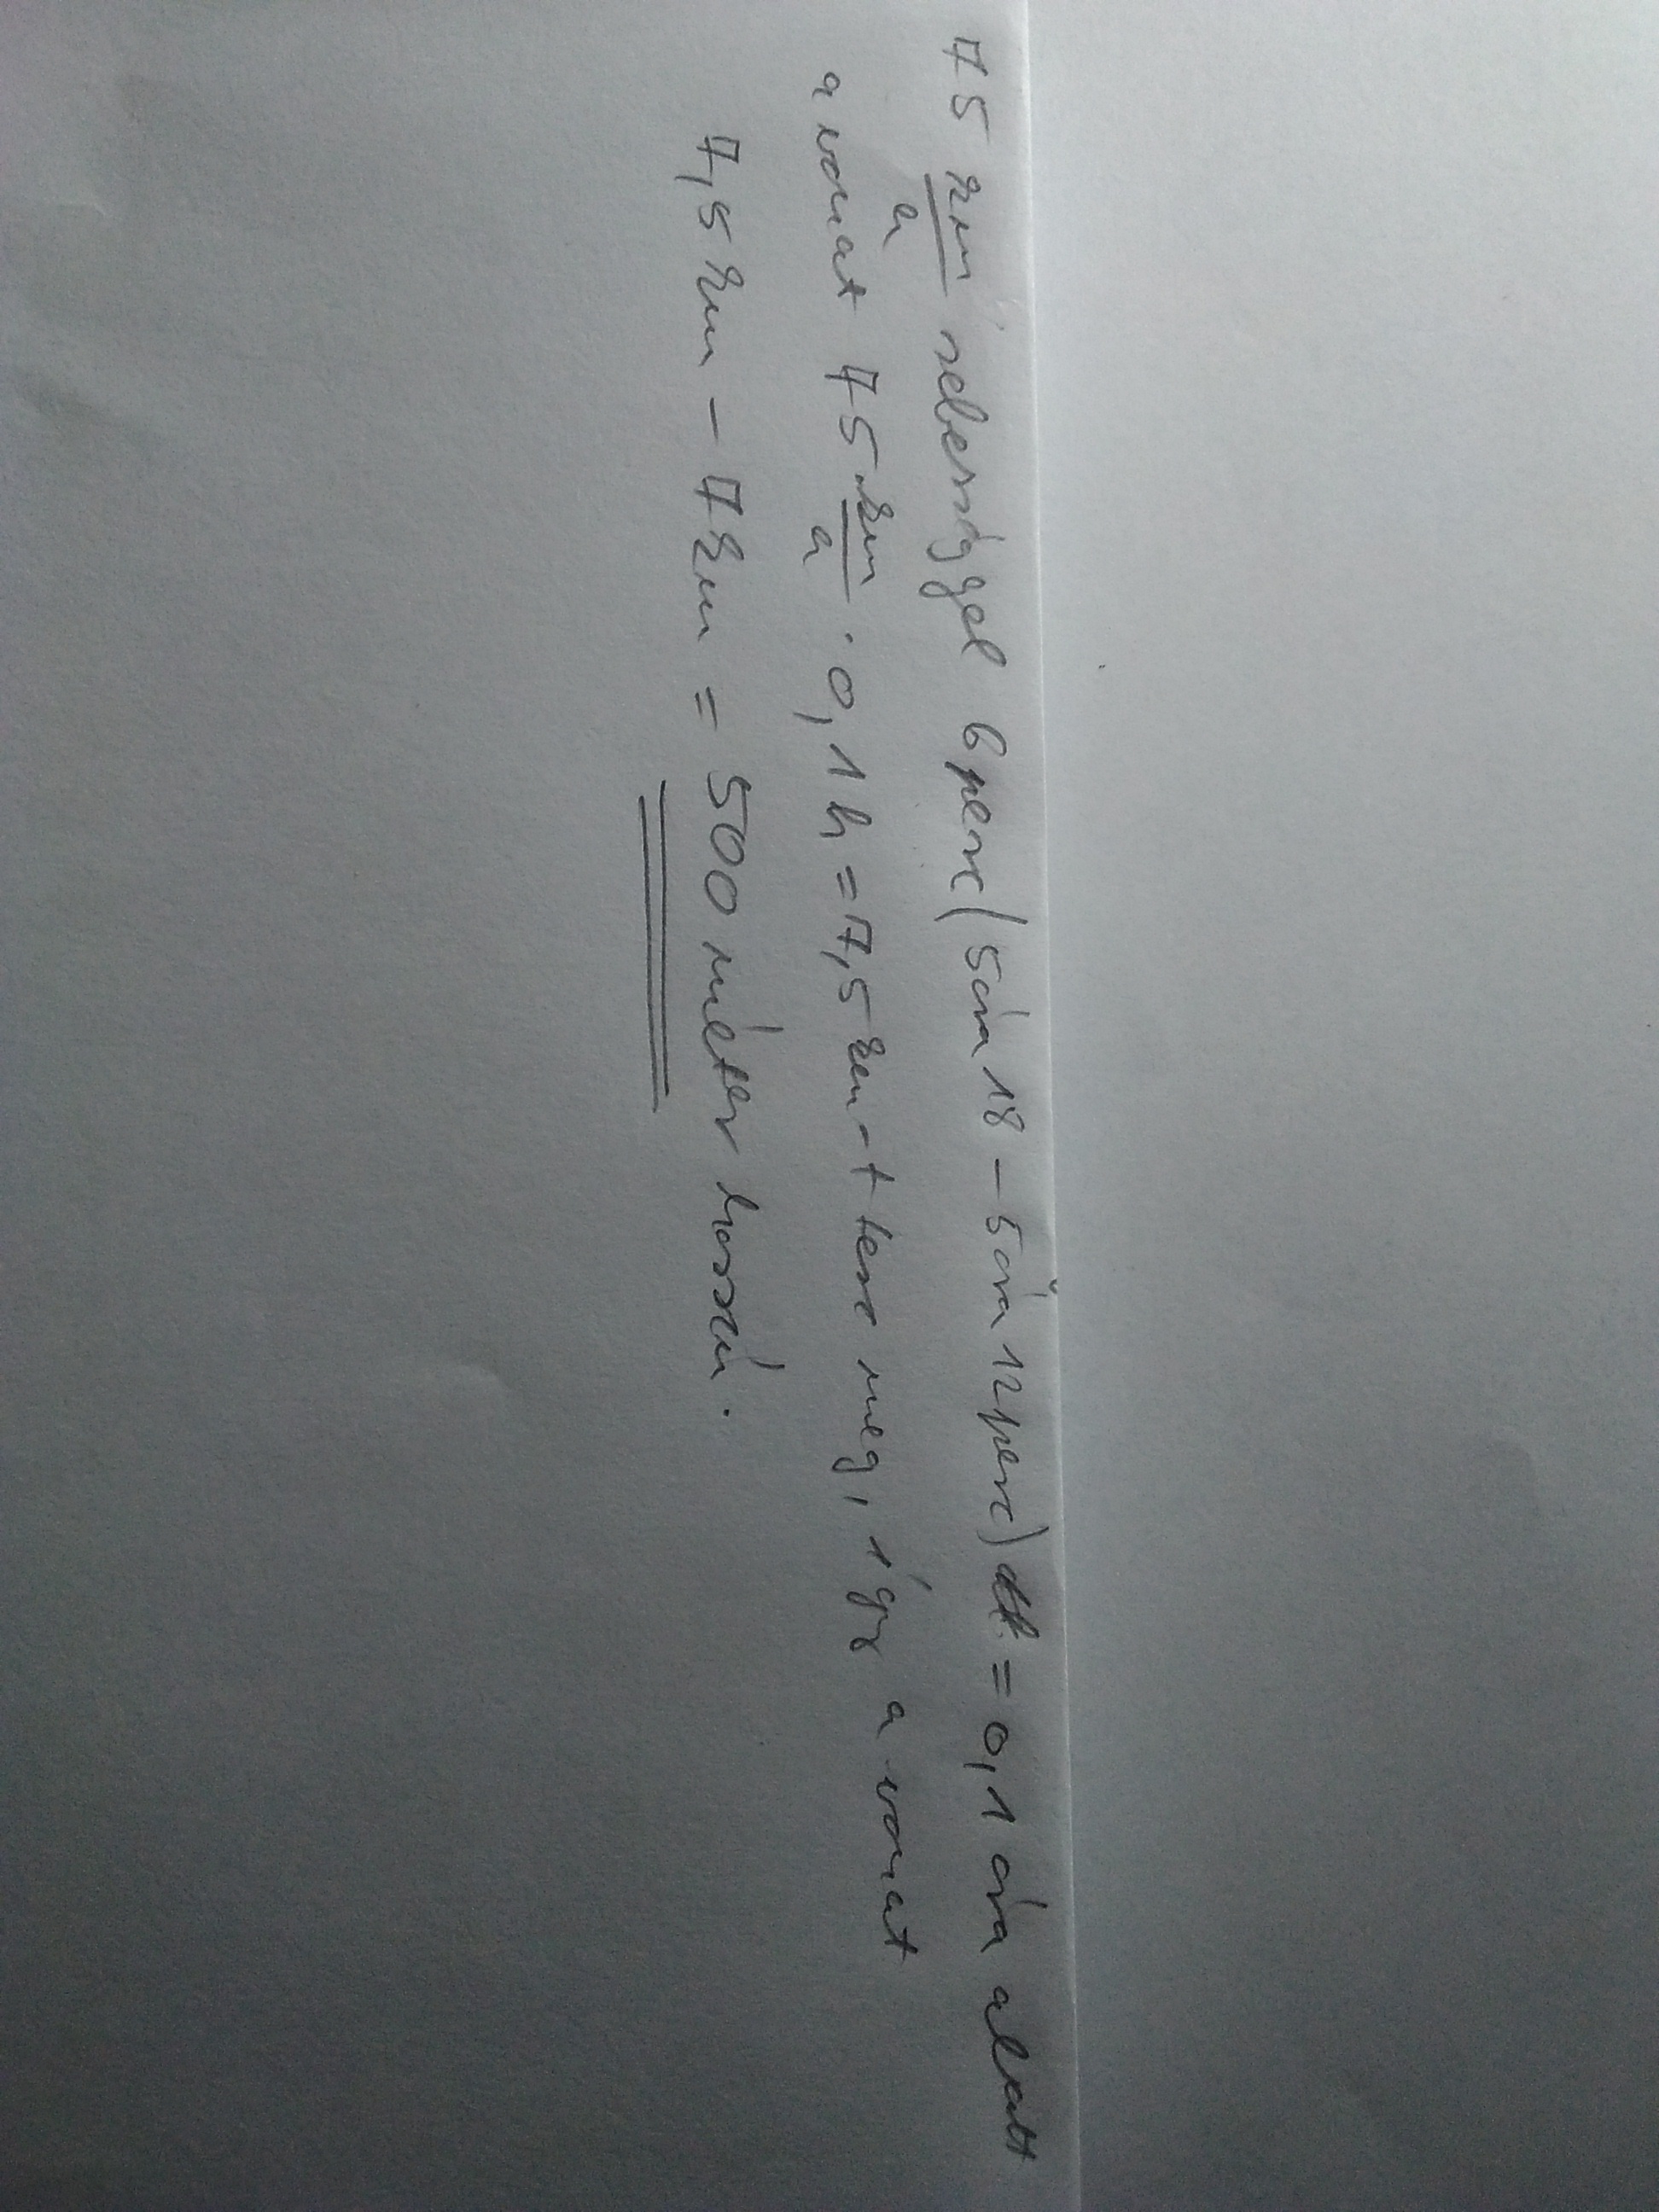 75 km/h sebességgel 6 perc (5óra 18 - 5óra 12perc) = 0,1 óra alatt
a vonat 75 km/h · 0,1h = 7,5 km-t tesz meg, így a vonat
7,5 km - 7 km = 500 méter hosszú.